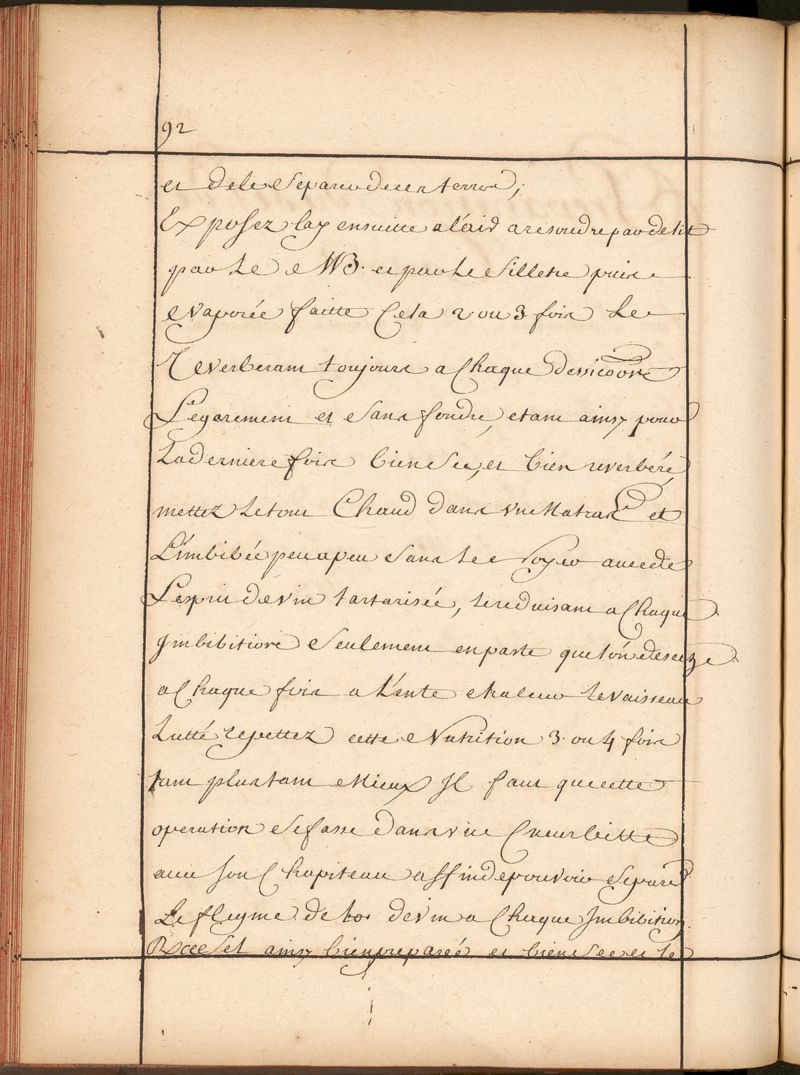 92
et de le separer de ses terres;
Exposez lay ensuitte a l'air a resoudre par
par le MB. et par le filtre puis
evaporée faitte Cela 2. ou 3. fois Le
Reverberant toujours a Chaque
Legerement et sans fondre, etant ainsy pour
La derniere fois bien sec, et bien reverbéré
mettez Le tout Chaud dans vn Matras et
L'imbibée peu a peu sans le Noyer avec de
L'esprit de vin tartarisée, le reduisant a Chaque
Jmbibition seulement en paste que l'on desseche
a Chaque fois a Lente chaleur le vaisseau
Lutté repettez cette Nutrition 3. ou 4 fois
tant plus tant Mieux Jl faut que cette
operation se fasse dans vne Cucurbitte
avec son Chapiteau affin de pouvoir separer
Le flegme de vin a Chaque Jmbibition.
sel ainsy bien preparée et bien sec et le